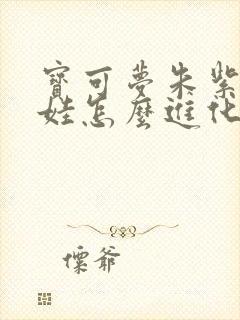 寶可夢朱紫
娃怎麼進化
慄爺